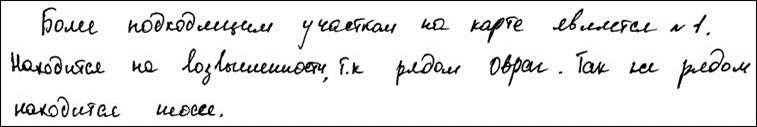 Более подходящим участком на карте является №1.
Находится на возвышенности, т.к рядом овраг. Так же рядом
находится шоссе.